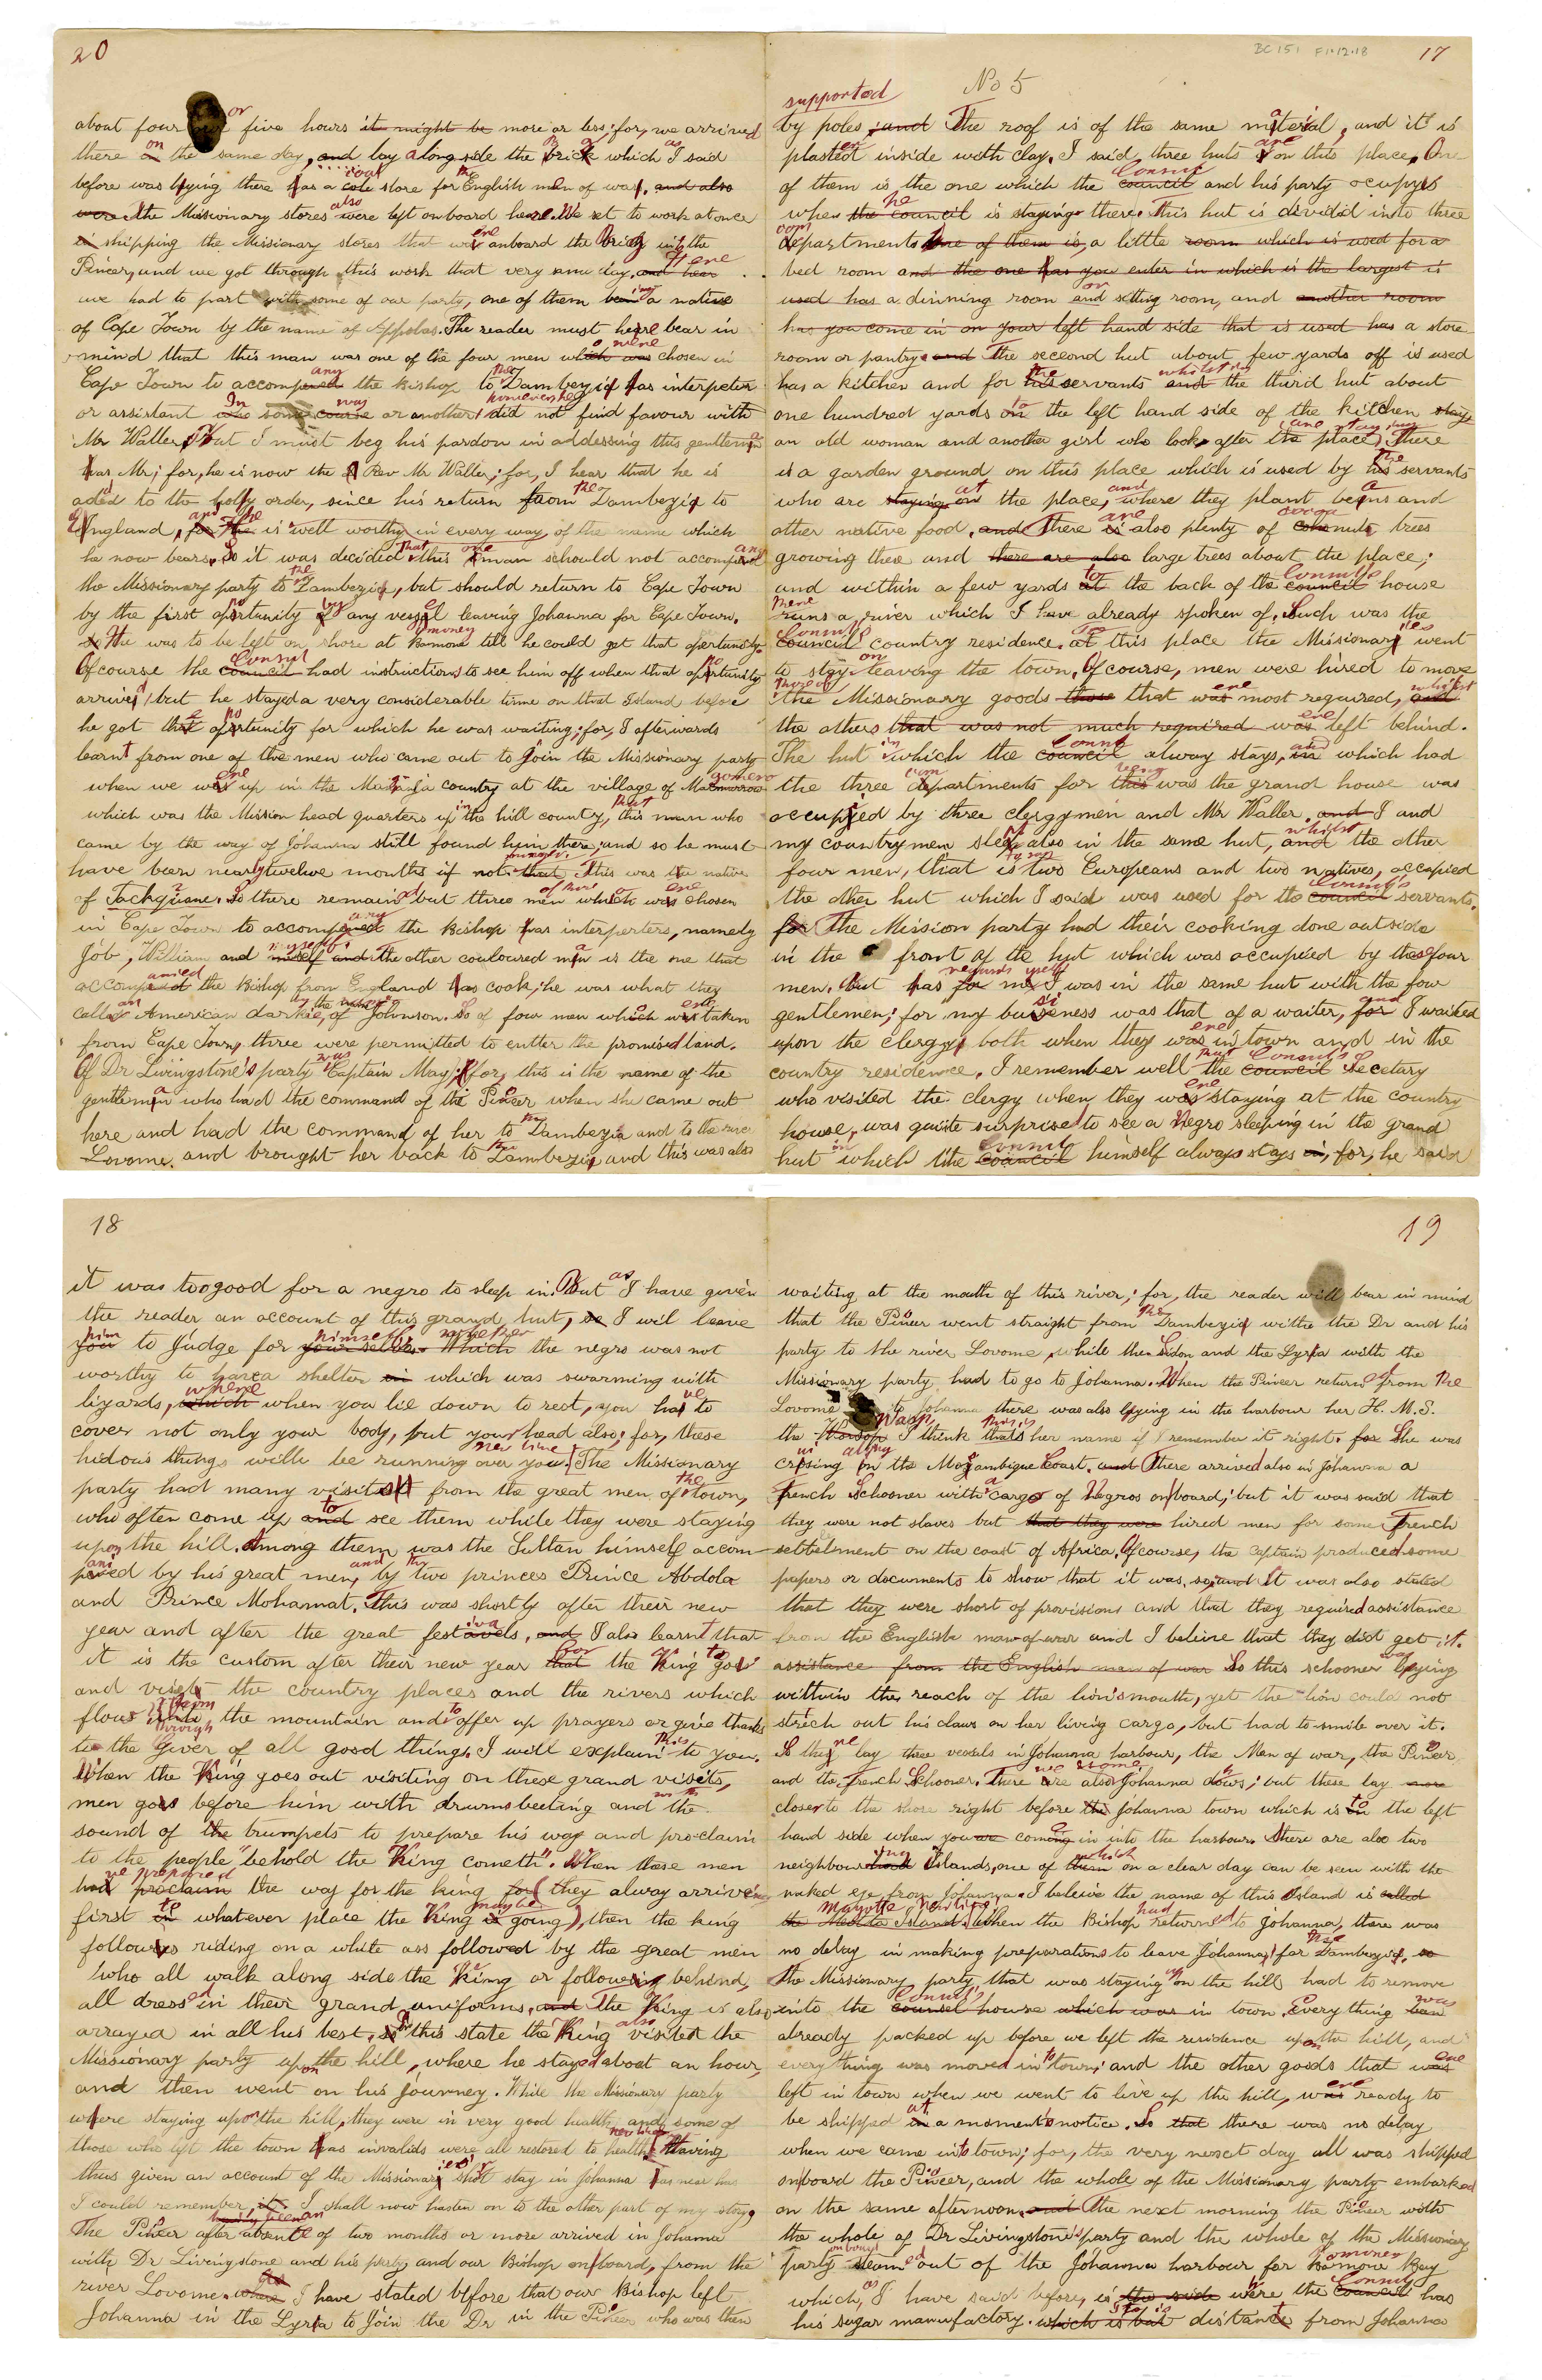 20
about four or five hours it might be more or less; for, we arrived
there on the same day, and lay along side the brick which as I said
before was lying there has a coal store for the English men of war, and also
were the Missionary stores also were left onboard here. We set to work at once
in shipping the Missionary stores that were onboard the Brig into the
Pineer, and we got through this work that very same day, and hear Here
we had to part with some of our party, one of them being a native
of Cape Town by the name of Appolos. The reader must here bear in
mind that this man was one of the four men which was were chosen in
Cape Town to accompany the Bishop to the Zambezia as interpeter
or assistant In some course was or another however he did not find favour with
Mr Waller, But I must beg his pardon in addessing this gentleman
has Mr; for, he is now the Rev Mr Waller; for, I hear that he is
aded to the holly order, since his return from the Zambezia to
England, and he is well worthy in every way of the name which
he now bears. So it was decided that this one man schould not accompany
the Missionary party to the Zambezia, but should return to Cape Town
by the first oportunity by any vessel leaving Johanna for Cape Town.
He was to be left on shore at Pomoney till he could get that oportunity.
Of course the council Connul had instructions to see him off when that oportunity
arrived, but he stayed a very considerable time on that Island before
he got that oportunity for which he was waiting; for, I afterwards
learnt from one of the men who came out to join the Missionary party
when we were up in the Manganja country at the village of Magomero
which was the Mission head quarters up in the hill country, that this man who
came by the way of Johanna still found him there; and so he must
have been nearly twelve months if not that more. This was the native
of Jackquane. So there remained but three men of those which were chosen
in Cape Town to accompany the Bishop has interperters, namely
Job, William and miself myself. and the other couloured man is the one that
accompanied the Bishop from England has cook; he was what they
called an American darkie, by the name of Johnson. So of four men which were taken
from Cape Town, three were permitted to entter the promised land.
Of Dr Livingstone's party was Captain May; for, this is the name of the
gentleman who had the command of the Pineer when she came out
here and had the command of her to the Zambezia and to the river
Lovome, and brought her back to the Zambezia, and this was also
BC 151 F1.12.18
17
No 5
supported
by poles, and The roof is of the same material, and it is
plastered inside with clay. I said, three huts are on this place. One
of them is the one which the council Connul and his party occupys
when the council he is staying there. This hut is divided into three
compartments One of them is, a little room which is used for a
bed room and the one has you enter in which is the largest is
used has a dinning room or and setting room, and another room
has you come in on your left hand side that is used has a store
room or pantry and The second hut about few yards off is used
has a kitchen and for the his servants whilst in and the third hut about
one hundred yards to on the left hand side of the kitchen stays
an old woman and another girl who looks after the place, are staying. There
is a garden ground on this place which is used by the his servants
who are staying at on the place, and where they plant beans and
other native food, and There are is also plenty of cocoa nuts trees
growing thee and there are also large trees about the place;
and within a few yards to at the back of the council Connul's house
runs a river which I have already spoken of. Such was the
Connul's Council country residence. To at this place the Missionaries went
to stay on leaving the town. Of course, men were hired to move
those of the Missionary goods those that were most required, and whilst
the others that was not much required was were left behind.
The hut in which the council Connul alway stays, in and which had
the three compartments for this being was the grand house was
occupied by three clergymen and Mr Waller. and I and
my countrymen slept also in the same hut, and whilst the other
four men, that is two Europeans and two natives, occupied
the other hut which I said was used for the council Connul's servants.
for The Mission party had their cooking done outside
in the front of the hut which was occupied by these four
men. But has for regards myself me I was in the same hut with the four
gentlemen; for my busineness was that of a waiter, for and I waited
upon the clergy both when they were in town and in the
country residence. I remember well that the council Connul's Secetary
who visited the clergy when they were staying at the country
house, was quiote surprised to see a Negro sleeping in the grand
hut in which the council Connul himself always stays in, for, he said
18
it was too good for a negro to sleep in. But as I have given
the reader an account of this grand hut, so I will leave
him you to Judge for himself your selves. whether Which the negro was not
worthy to have a shelter in which was swarming with
lizards, which where when you lie down to rest, you have to
cover not only your body, but your head also; for, these
hidous things will be running over you. new line The Missionary
party had many visits from the great men of the town,
who often come up and to see them while they were staying
upon the hill. Among them was the Sultan himself accom-
panied by his great men, and by the two princes Prince Abdola
and Prince Mohamat. This was shortly after their new
year and after the great festavels, and I also learnt that
it is the custom after their new year that for the King to go
and visit the country places and the rivers which
flows from the mountain and to offer up prayers or give thanks
to the Giver of all good things. I will explain this to you.
When the King goes out visiting on these grand visits,
men goes before him with drums beeting and with the
sound of the trumpets to prepare his way and proclaim
to the people "behold the King cometh". When these men
had ve prepared proclaim the way for the king for they alway arrive
first in to whatever place the King is maybe going), then the king
followes riding on a white ass followed by the great men
who all walk along side the King or following behind,
all dressed in their grand uniforms, and The King is also
arrayed in all his best, In this state the King also visited the
Missionary party upon the hill, where he stayed about an hour,
and then went on his journey. While the Missionary party
where staying upon the hill, they were in very good health, and some of
those who left the town has invalids were all restored to health. new line Having
thus given an account of the Missionaries shot stay in Johanna has near has
I could remember it. I shall now hasten on to the other part of my story
The Pineer after having been an absente of two months or more arrived in Johanna
with Dr Livingstone and his party, and our Bishop onboard, from the
river Lovome. where As I have stated before that our Bishop left
Johanna in the Lyra to join the Dr in the Pineer who was then
19
waiting at the mouth of this river; for, the reader will bear in mind
that the Pineer went straight from the Zambezia withe the Dr and his
party to the river Lovome, while the Sidon and the Lyra with the
Missionary party had to go to Johanna. When the Pineer returned from the
Lovome to Johanna there was also lying in the harbour her H. M. S.
the Wasp, I think thats this is her name if I remember it right. for She was
crusing on along the Mozambique Coast. and There arrived also in Johanna a
french Schooner with a cargo of Negros onboard; but it was said that
they were not slaves but that they were hired men for some French
settelment on the coast of Africa. Of course, the captain produced some
papers or documents to show that it was so, and It was also stated
that they were short of provisions and that they required assistance
from the Englishe man-of-war and I believe that they did get it.
assistance from the English man of war So this schooner lay lying
withuin the reach of the lion's mouth, yet the lion could not
strech out his claws on her living cargo, but had to smile over it.
So there lay three vessels in Johanna harbour, the Man of war, the Pineer
and the french Schooner. There were are also some Johanna dows; but these lay more
closer to the shore right before the Johanna town which is to on the left
hand side when you are coming in into the harbour. There are also two
neighbouring Islands, one of them which on a clear day can be seen with the
naked eye from Johanna. I beleive the name of this Island is called
the Meotta Island. Mayotte new line When the Bishop had returned to Johanna, there was
no delay in making preparations to leave Johanna, for the Zambezia. so
The Missionary party that was staying up on the hill had to remove
into the counsel Connul's house which was in town. Everything was been
already packed up before we left the residence upon the hill, and
every thing was moved in to town; and the other goods that were
left in town when we went to live up the hill, were ready to
be shipped at in a moment's notice. So that there was no delay
when we came into town; for, the very next day all was shipped
onboard the Pineer, and the whole of the Missionary party embarked
on the same afternoon. and The next morning the Pineer with
the whole of Dr Livingstone's party and the whole of the Missionary
party onboard steamed out of the Johanna harbour for Pomoney Bay
which, as I have said before, is the side were the council Connul has
his sugar manufactory. which is but distant from Johanna